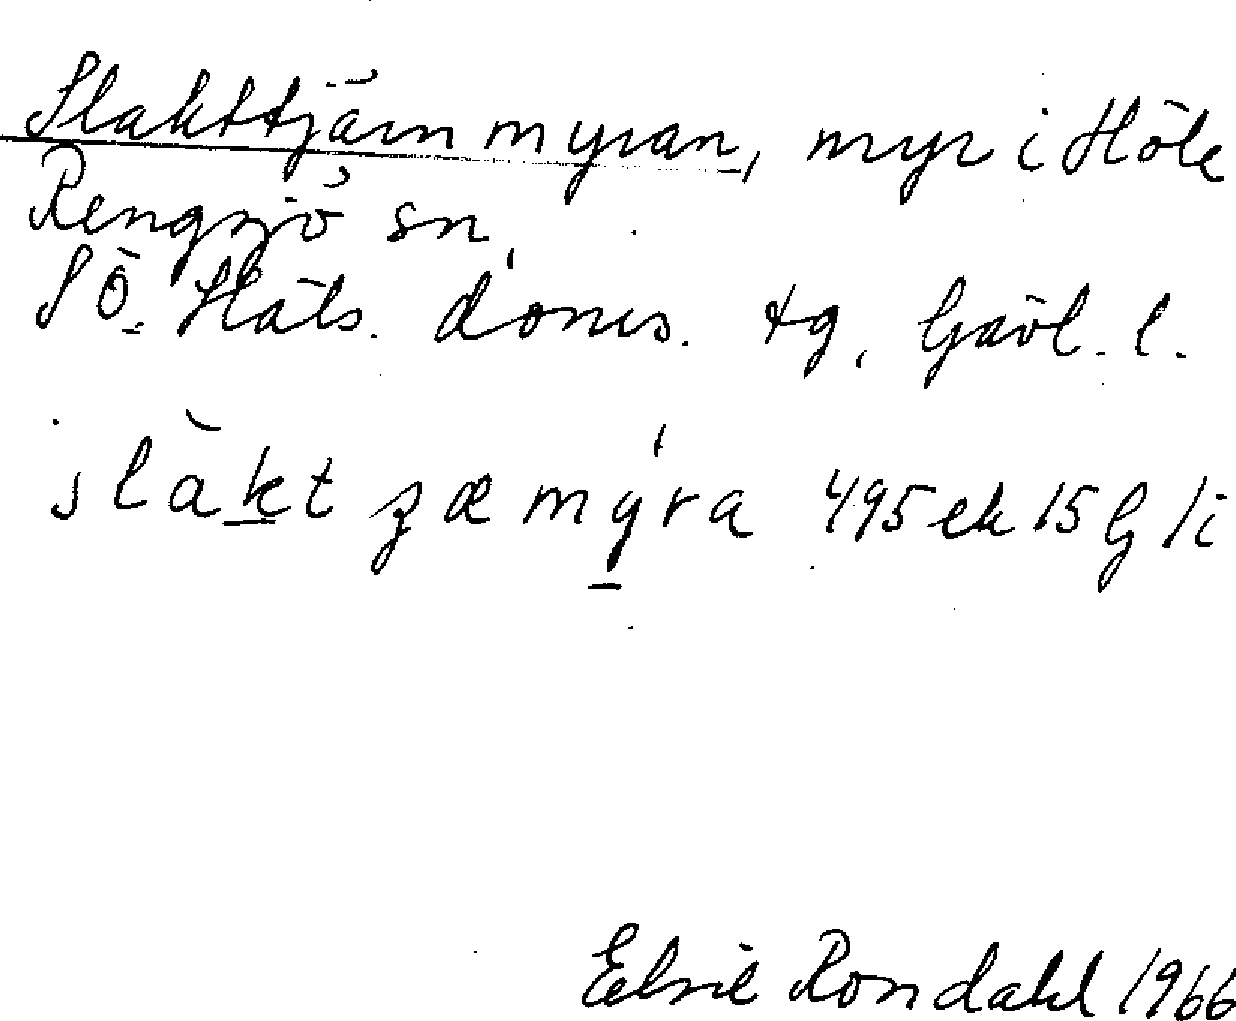 Slakttjärnmyran, myr i Höle
Rengsjö sn,
SÖ. Häls. doms. tg, Gävl. l.
slàkt ʒæmýra 495 ek 15 G li
Elsie Rondahl 1966